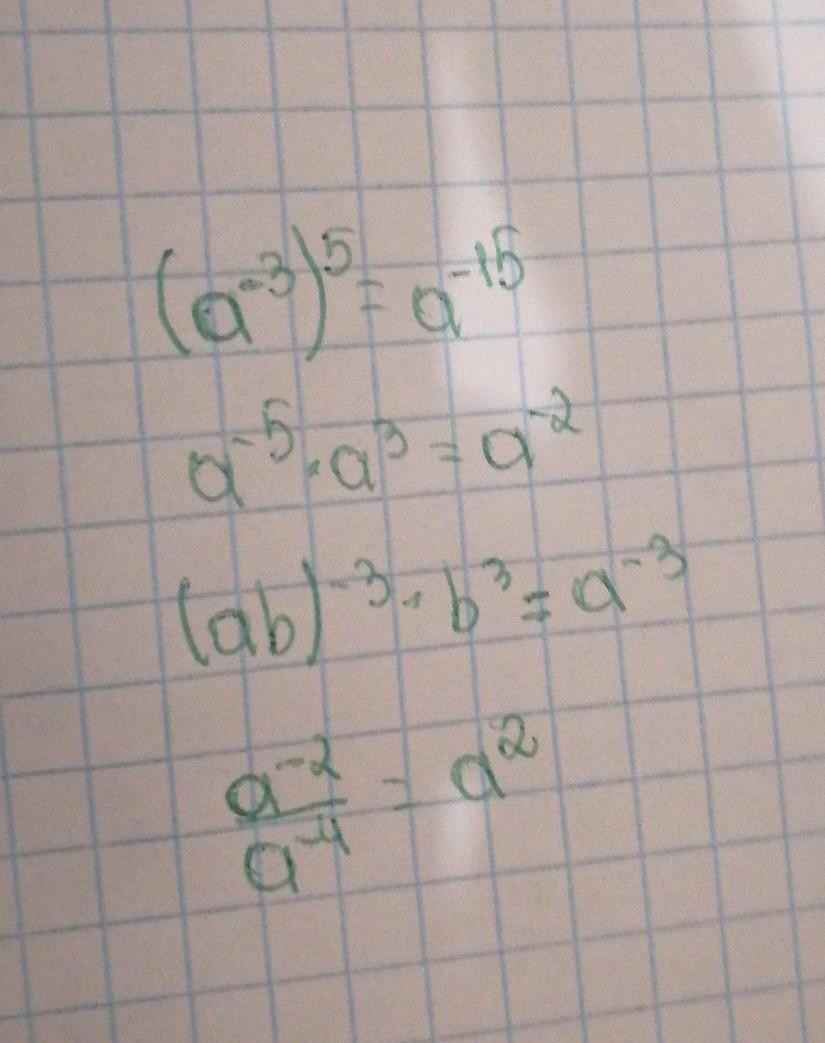 (a⁻³)⁵ = a⁻¹⁵
a⁻⁵ · a³ = a⁻²
(ab)⁻³ · b³ = a⁻³
a⁻²/a⁻⁴ = a²